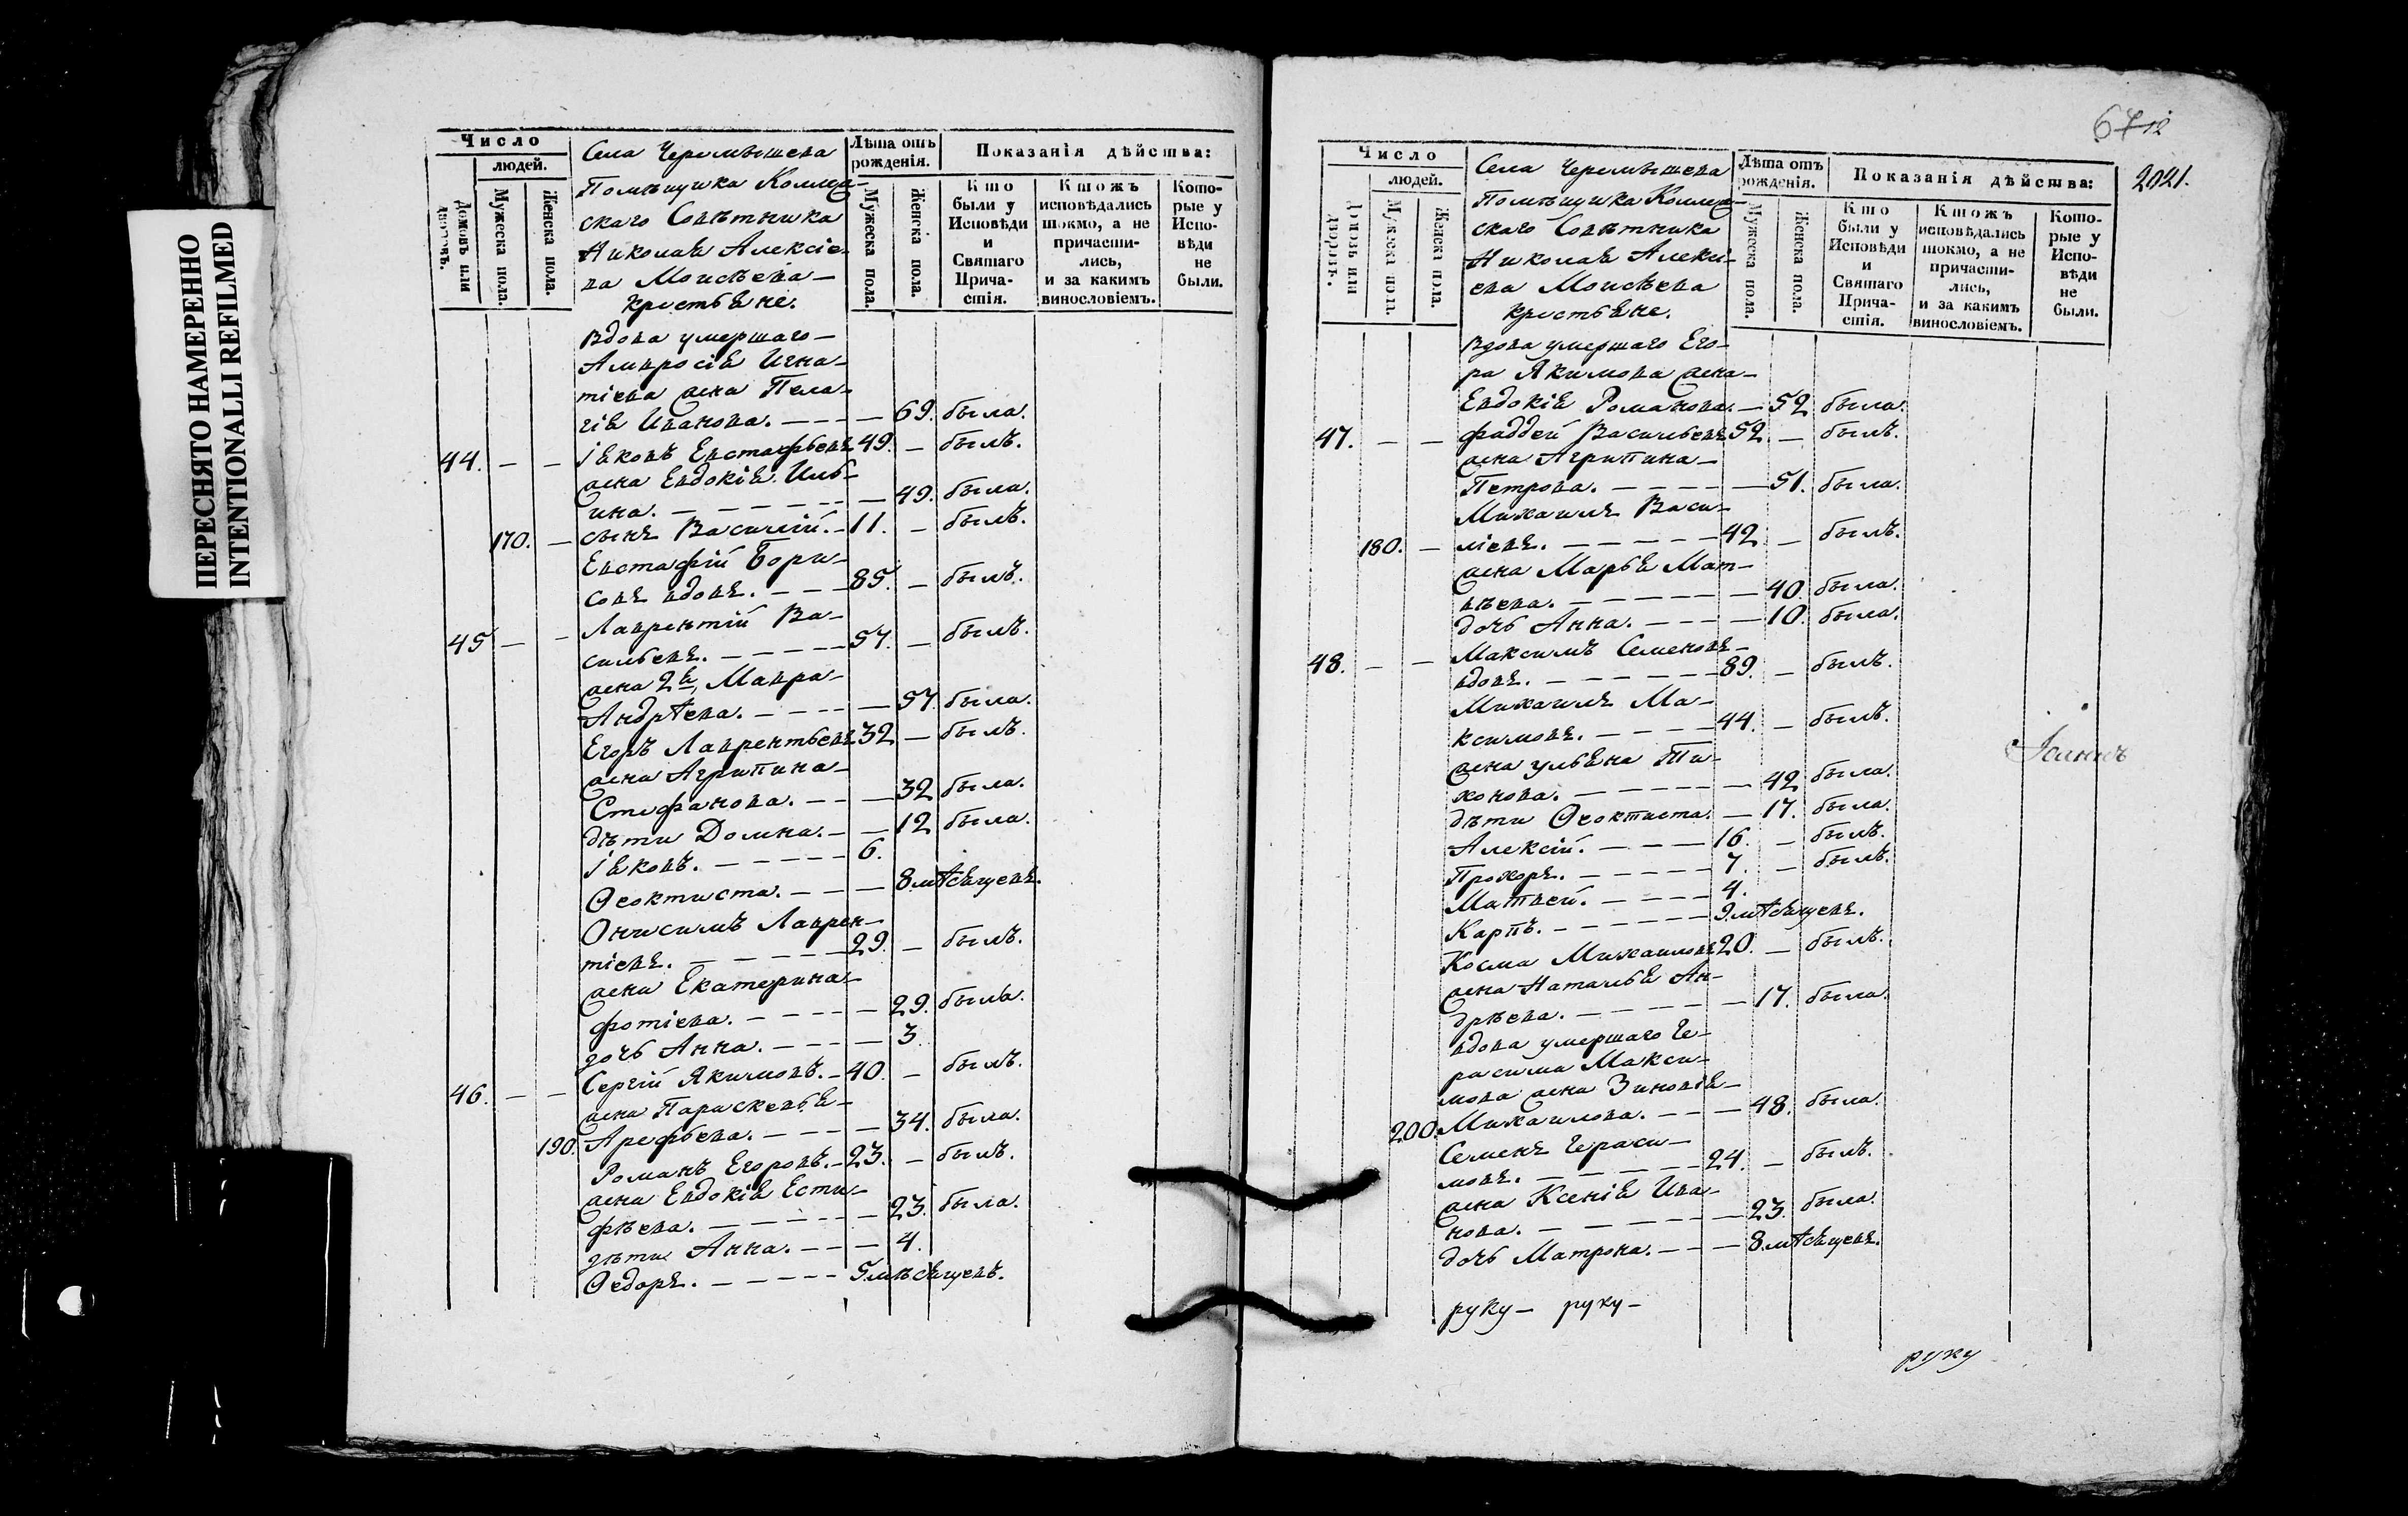 ПЕРЕСНЯТО НАМЕРЕННО
INTENTIONALLI REFILMED
Число
людей.
Домовъ или дворовъ.
Мужеска пола.
Женска пола.
Села Черемышева
Помѣщика Коллеж-
скаго Совѣтника
Николая Алексіе-
ва Моисѣева
крестьяне.
Лѣта отъ рожденія.
Мужеска пола.
Женска пола.
Показанія дѣйства:
Кто были у Исповѣди и Святаго Прича-стія.
Ктожъ исповѣдались токмо, а не причасти-лись, и за какимъ винословіемъ.
Кото-рые у Испо-вѣди не были.
вдова умершаго
Амвросія Игна-
тіева жена Пела-
гія Иванова. — 69. была.
44. — — Іяковъ Евстафьевъ 49. — былъ.
жена Евдокія Иль-
ина. — 49. была.
170. — сынъ Василій. 11. — былъ.
Евстафій Бори-
совъ вдовъ. 85. — былъ.
45 — — Лаврентій Ва-
сильевъ. 57. — былъ.
жена 2я, Мавра
Андрѣева. — 57. была.
Егоръ Лаврентьевъ 32 — былъ.
жена Агрипина
Стефанова. — 32 была.
дѣти Домна. — 12 была.
Іяковъ. 6.
Ѳеоктиста. — 8. мѣсяцевъ.
Онисимъ Лаврен-
тіевъ. 29. — былъ.
жена Екатерина
фотіева. — 29. была.
дочь Анна. — 3
46. — — Сергій Якимовъ. 40. — былъ.
жена Параскевья
190. Арефьева. — 34. была.
Романъ Егоровъ. 23. — былъ.
жена Евдокія Ести-
фѣева. — 23. была.
дѣти Анна. — 4.
Ѳедоръ. 5. мѣсяцевъ.
2021.
Число
людей.
Домовъ или дворовъ.
Мужеска пола.
Женска пола.
Села Черемышева
Помѣщика Коллеж-
скаго Совѣтника
Николая Алексі-
ева Моисѣева
крестьяне.
Лѣта отъ рожденія.
Мужеска пола.
Женска пола.
Показанія дѣйства:
Кто были у Исповѣди и Святаго Прича-стія.
Ктожъ исповѣдались токмо, а не причасти-лись, и за какимъ винословіемъ.
Кото-рые у Испо-вѣди не были.
вдова умершаго Его-
ра Якимова жена
Евдокія Романова. — 52 была.
47. — — фаддей Васильевъ 52. — былъ.
жена Агрипина
Петрова. — 51. была.
Михаилъ Васи-
180. — ліевъ. 42 — былъ.
жена Марья Мат-
вѣева. — 40. была.
дочь Анна. — 10. была.
48. — — Максимъ Семеновъ
вдовъ. 89. — былъ.
Михаилъ Ма-
ксимовъ. 44. — былъ.
жена ульяна Ти-
хонова. — 42 была.
дѣти Ѳеоктиста. — 17. была.
Алексій. 16. — былъ.
Прохоръ. 7. — былъ.
Матвей. 4.
Карпъ. 9. мѣсяцевъ.
Косма Михаиловъ 20. — былъ.
жена Наталья Ан-
дрѣева. — 17. была.
вдова умершаго Ге-
расима Макси-
мова жена Зиновія
200. Михаилова. — 48. была.
Семенъ Гераси-
мовъ. 24. — былъ.
жена Ксенія Ива-
нова. — 23. была.
дочь Матрона. — 8. мѣсяцевъ.
Іоаннъ
руку — руку —
руку